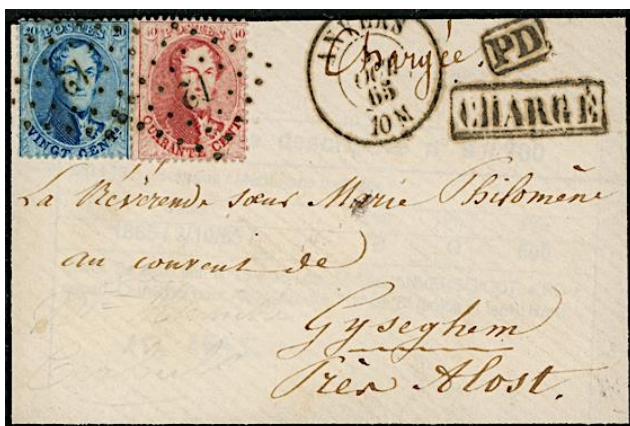 20 POSTES 20
VINGT CENT
12
40 POSTES 40
QUARANTE CENT
12
ANVERS
OCT
65
10 M
Chargée.
PD
CHARGÉ
La Révérende sœur Marie Philomène
au couvent de
Gyseghem
Près Alost.